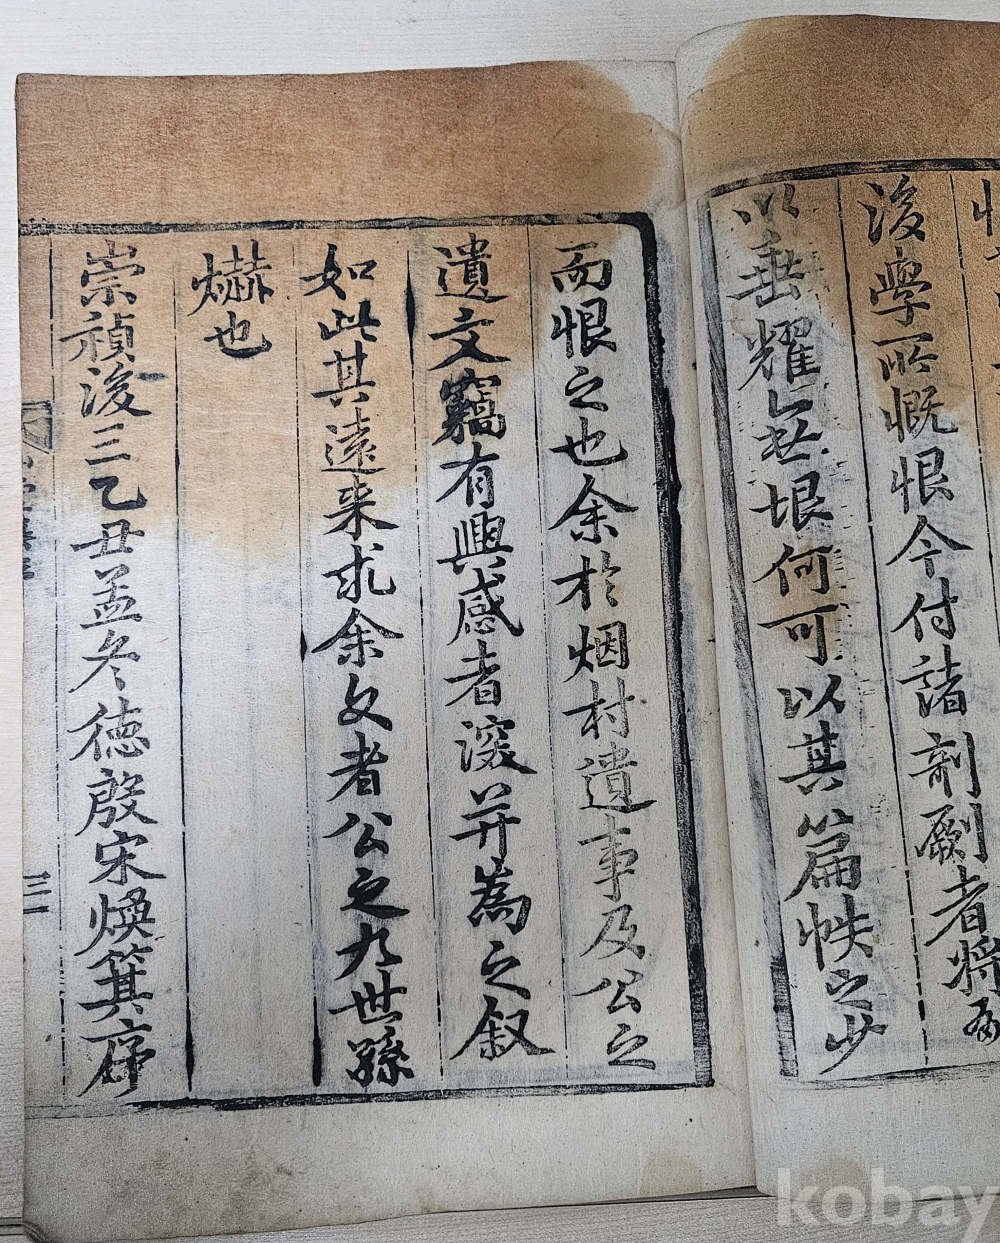 後學所慨恨今付諸剞劂者將
以垂耀無垠何可以其篇帙之少
而恨之也余於烟村遺事及公之
遺文竊有興感者深并爲之叙
如此其遠来求余文者公之九世孫
爀也
崇禎後三乙丑孟冬德殷宋煥箕序
三
kobay